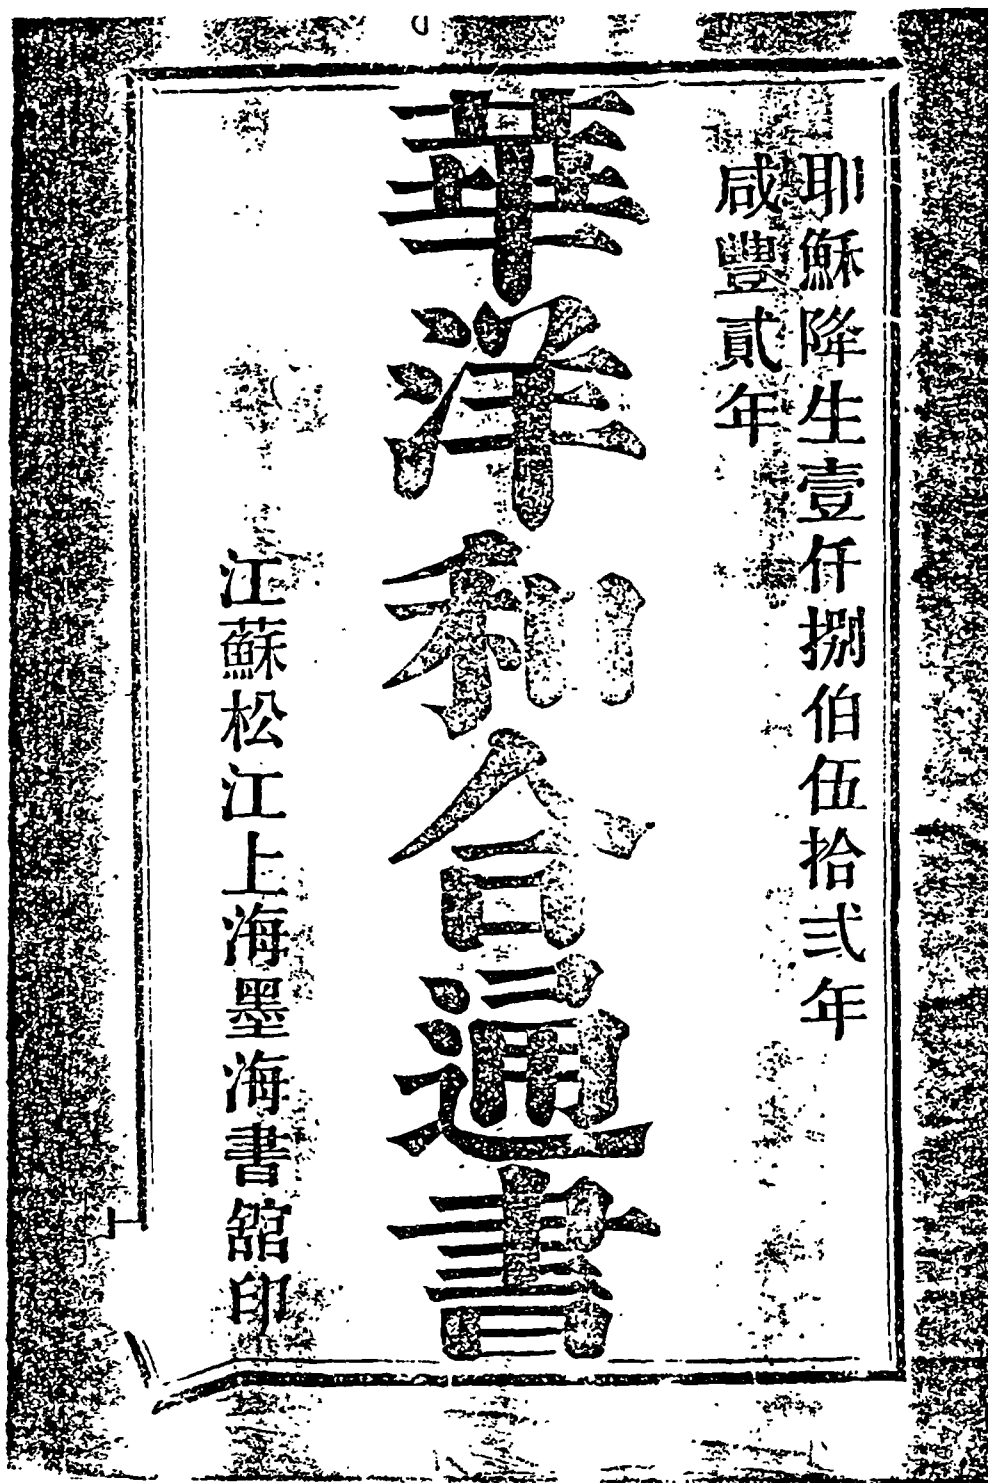 耶穌降生壹仟捌伯伍拾弍年
咸豐貳年
華洋和合通書
江蘇松江上海墨海書舘印